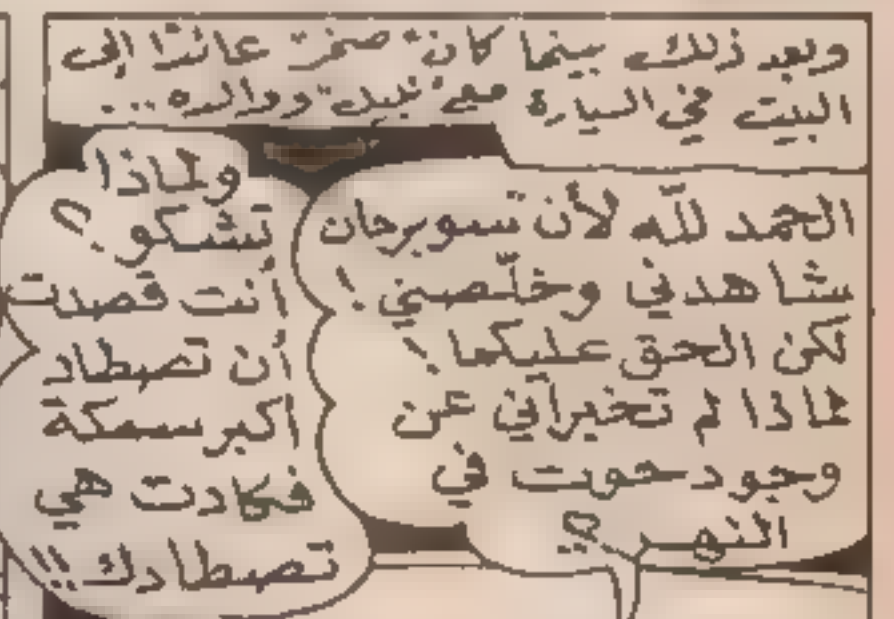 وبعد ذلك بينما كان "صخر" عائدًا إلى
البيت في السيارة مع "نبيل" ووالده...
الحمد للّه لأن سوبرمان
شاهدني وخلّصني!
لكن الحق عليكما!
لماذا لم تخبراني عن
وجود حوت في
النهر؟؟
ولماذا
تشكو؟
أنت قصدت
أن تصطاد
أكبر سمكة
فكادت هي
تصطادك!!